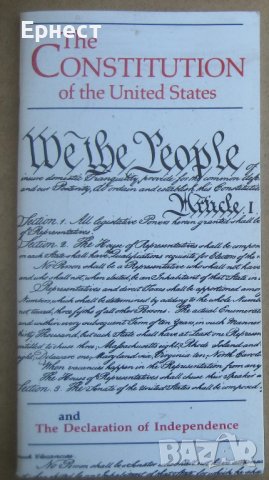 Екрнест
The
CONSTITUTION
of the United States
We the People of
insure domestic Tranquility, provide for the common
and our Posterity, do ordain and establish this Constitution
Article I
Section 1. All legislative Powers herein granted shall be
of Representatives.
Section 2. The House of Representatives shall be
in each State shall have Qualifications requisite for Electors of the
No Person shall be a Representative who shall not have
and who shall not, when elected, be an Inhabitant of that State in
Representatives and direct Taxes shall be apportioned among
Numbers, which shall be determined by adding to the whole Number
not taxed, three fifths of all other Persons. The actual Enumeration
and within every subsequent Term of ten Years, in such Manner
thirty Thousand, but each State shall have at Least one
entitled to chuse three, Massachusetts eight, Rhode Island and
eight, Delaware one, Maryland six, Virginia ten, North Carolina
When vacancies happen in the Representation from any
The House of Representatives shall chuse their Speaker
Section 3. The Senate of the United States shall be composed
and
The Declaration of Independence
such Vacancies
No Person shall be a Senator who shall not have
bazar